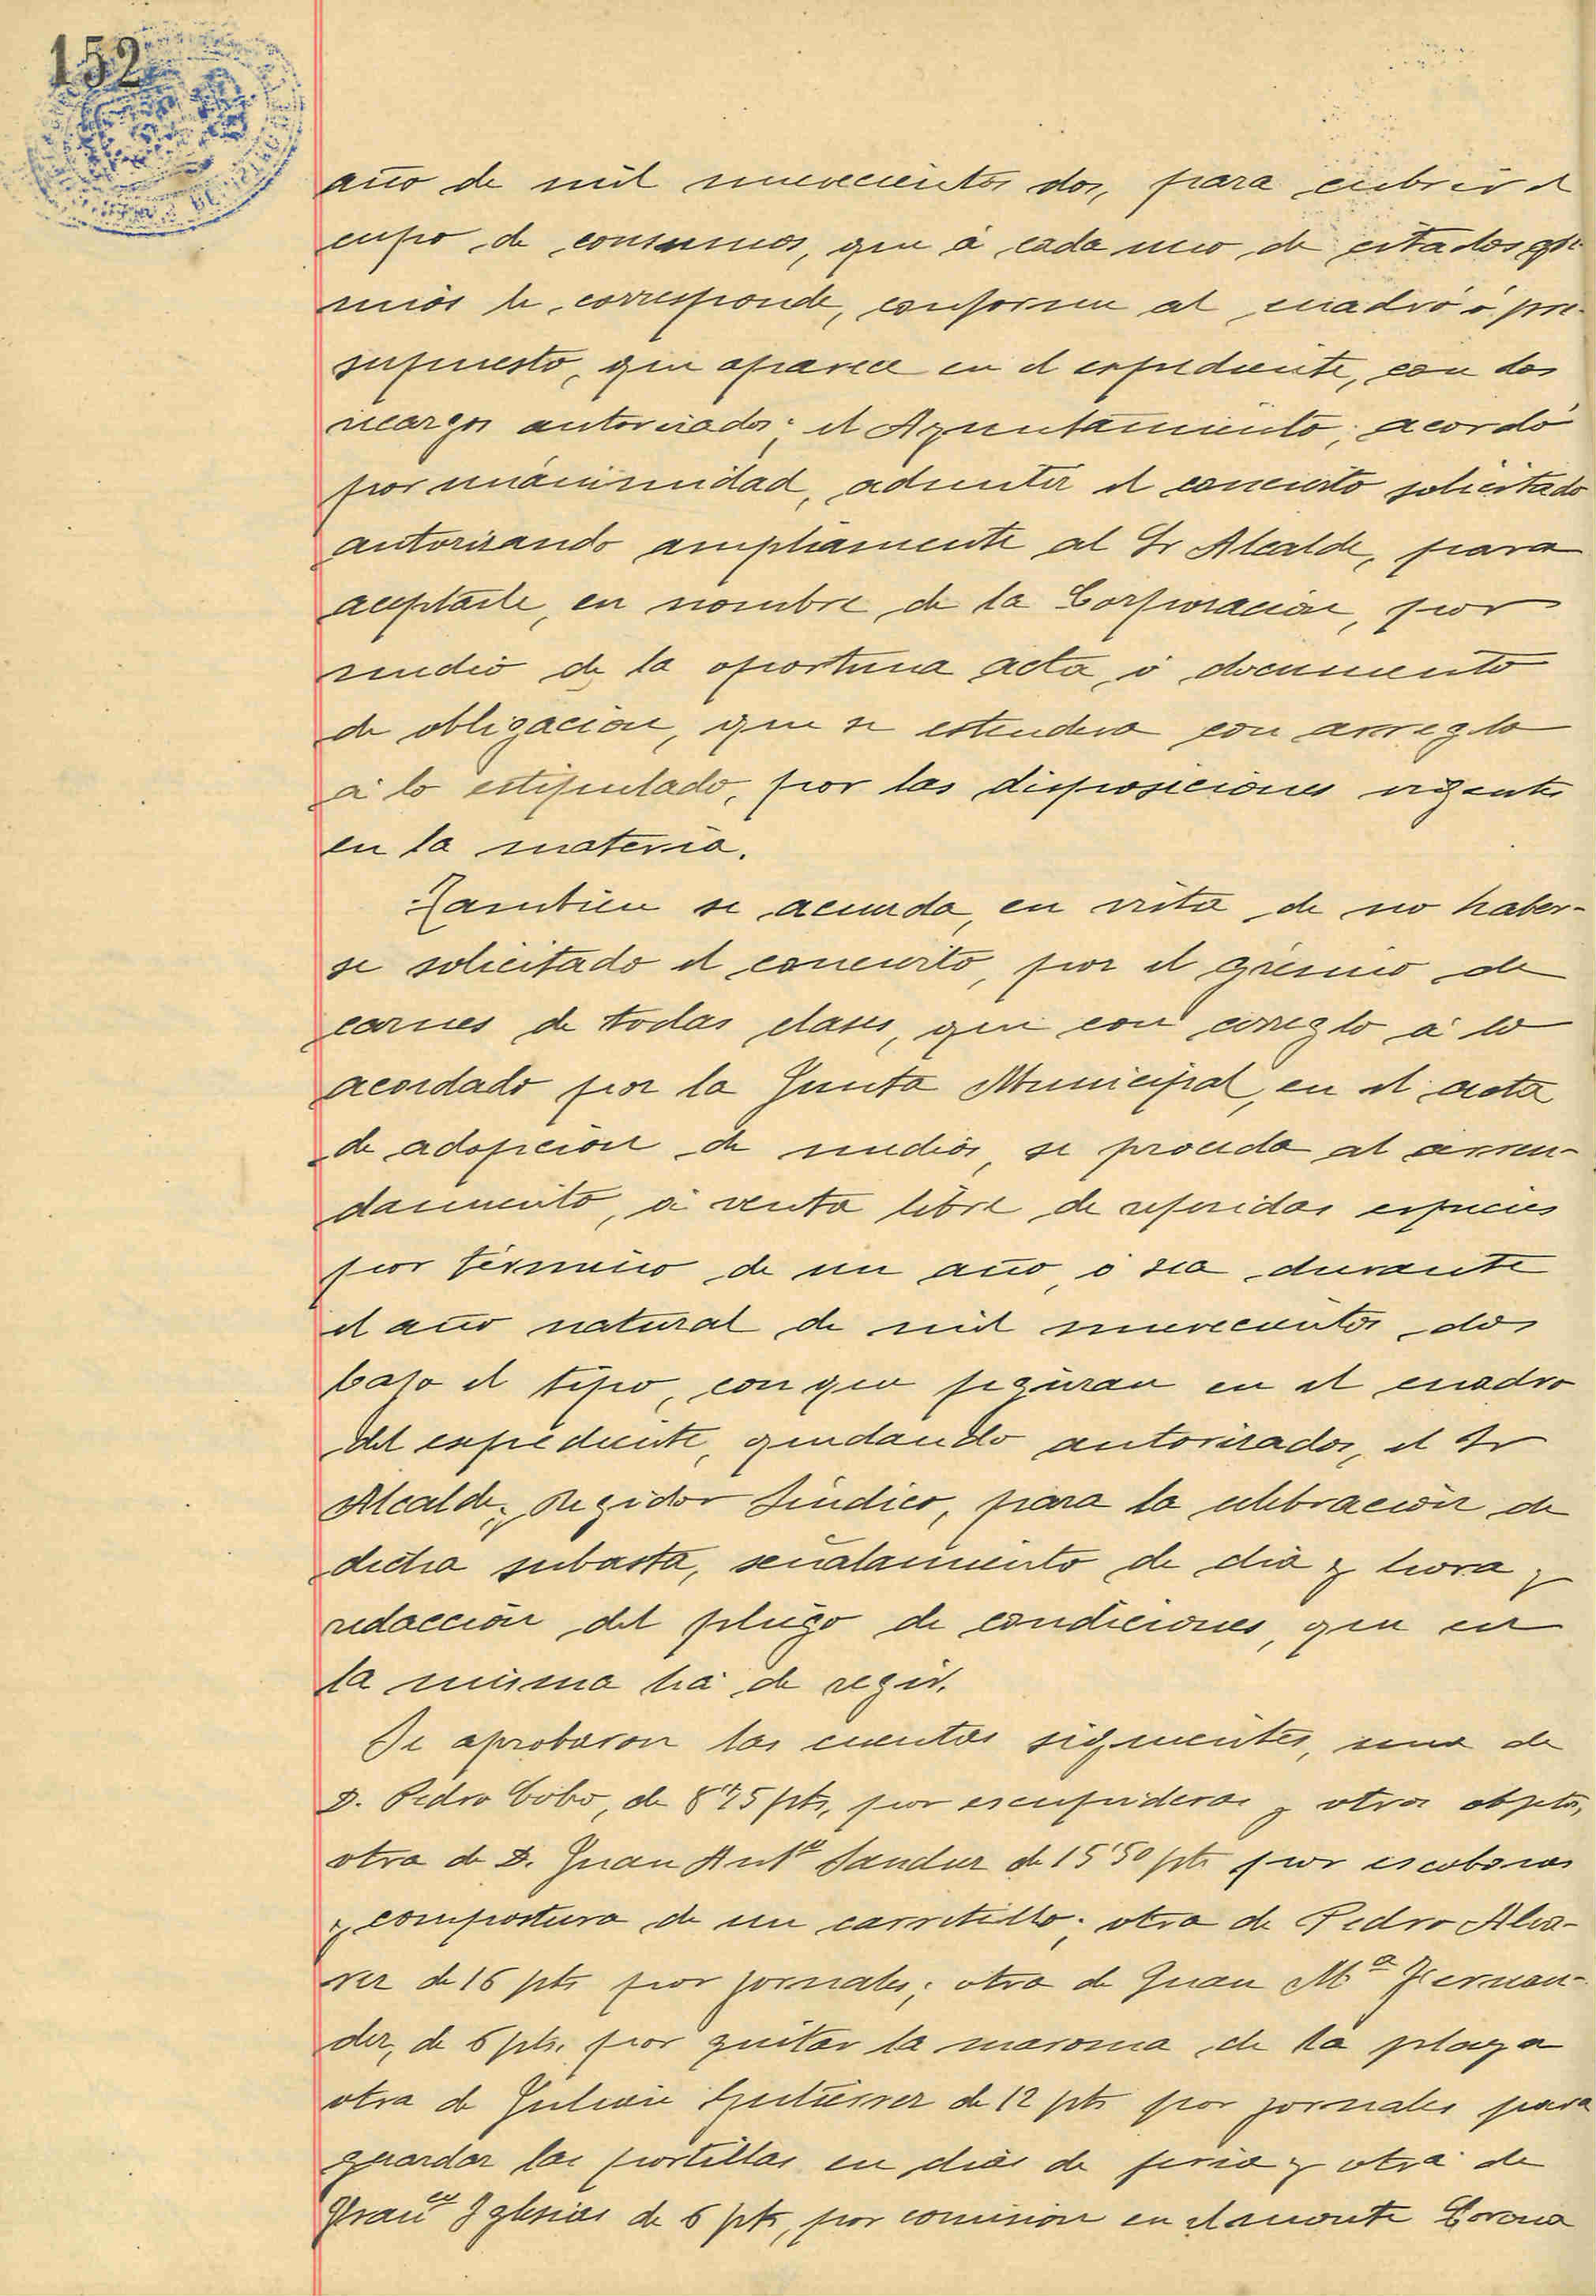 152
año de mil novecientos dos, para cubrir el
cupo de consumos, que á cada uno de citados gre-
mios le corresponde, conforme al cuadro ó pre-
supuesto, que aparece en el expediente, con los
recargos autorizados; el Ayuntamiento, acordó
por unánimidad, admitir el concierto solicitado
autorizando ampliamente al Sr Alcalde, para
aceptarle, en nombre de la Corporacion, por
medio de la oportuna acta, ó documento
de obligacion, que se estendera con arreglo
á lo estipulado, por las disposiciones vigentes
en la materia.
Tambien se acuerda, en vista de no haber-
se solicitado el concierto, por el grémio de
carnes de todas clases, que con arreglo á lo
acordado por la Junta Municipal, en el acta
de adopcion de medios, se proceda al arren-
damiento, á venta libre de referidas especies
por término de un año, ó sea durante
el año natural de mil novecientos dos
bajo el tipo, con que figuran en el cuadro
del expediente, quedando autorizados, el Sr
Alcalde y Regidor Sindico, para la celebración de
dicha subasta, señalamiento de dia y hora y
redacción del pliego de condiciones, que en
la misma há de regir.
Se aprobaron las cuentas siguientes, una de
D. Pedro Cobo, de 8'75 pts, por escupideras y otros objetos,
otra de D. Juan Antº Sanchez de 15'50 pts por escobones
y compostura de un carretillo; otra de Pedro Alva-
rez de 16 pts por jornales; otra de Juan Mª Fernan-
dez, de 6 pts. por quitar la maroma de la playa
otra de Julian Gutierrez de 12 pts por jornales para
guardar las portillas en dias de feria y otra de
Franco Yglesias de 6 pts, por comision en el monte Corona